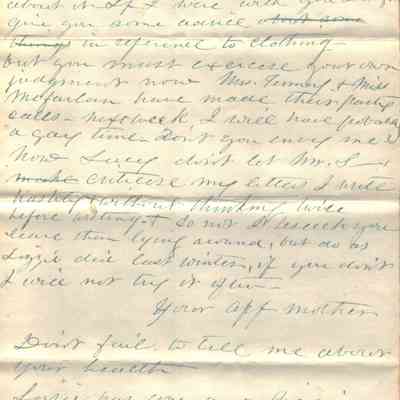 about it. If I were with you
give you some advice about some
things in reference to clothing—
but you must exercise your own
judgment now Mrs. Fenning & Miss
McFarlan have made their party
calls— next week I will have probably
a gay time— Don't you envy me?
Now Lucy don't let Mr. S—
make criticise my letters I write
hastily without thinking twice
before writing & do not I beseech you
leave them lying around, but do as
Lizzie did last winter, if you don't
I will not try it often—
Your aff mother
Don't fail to tell me about
your health
has